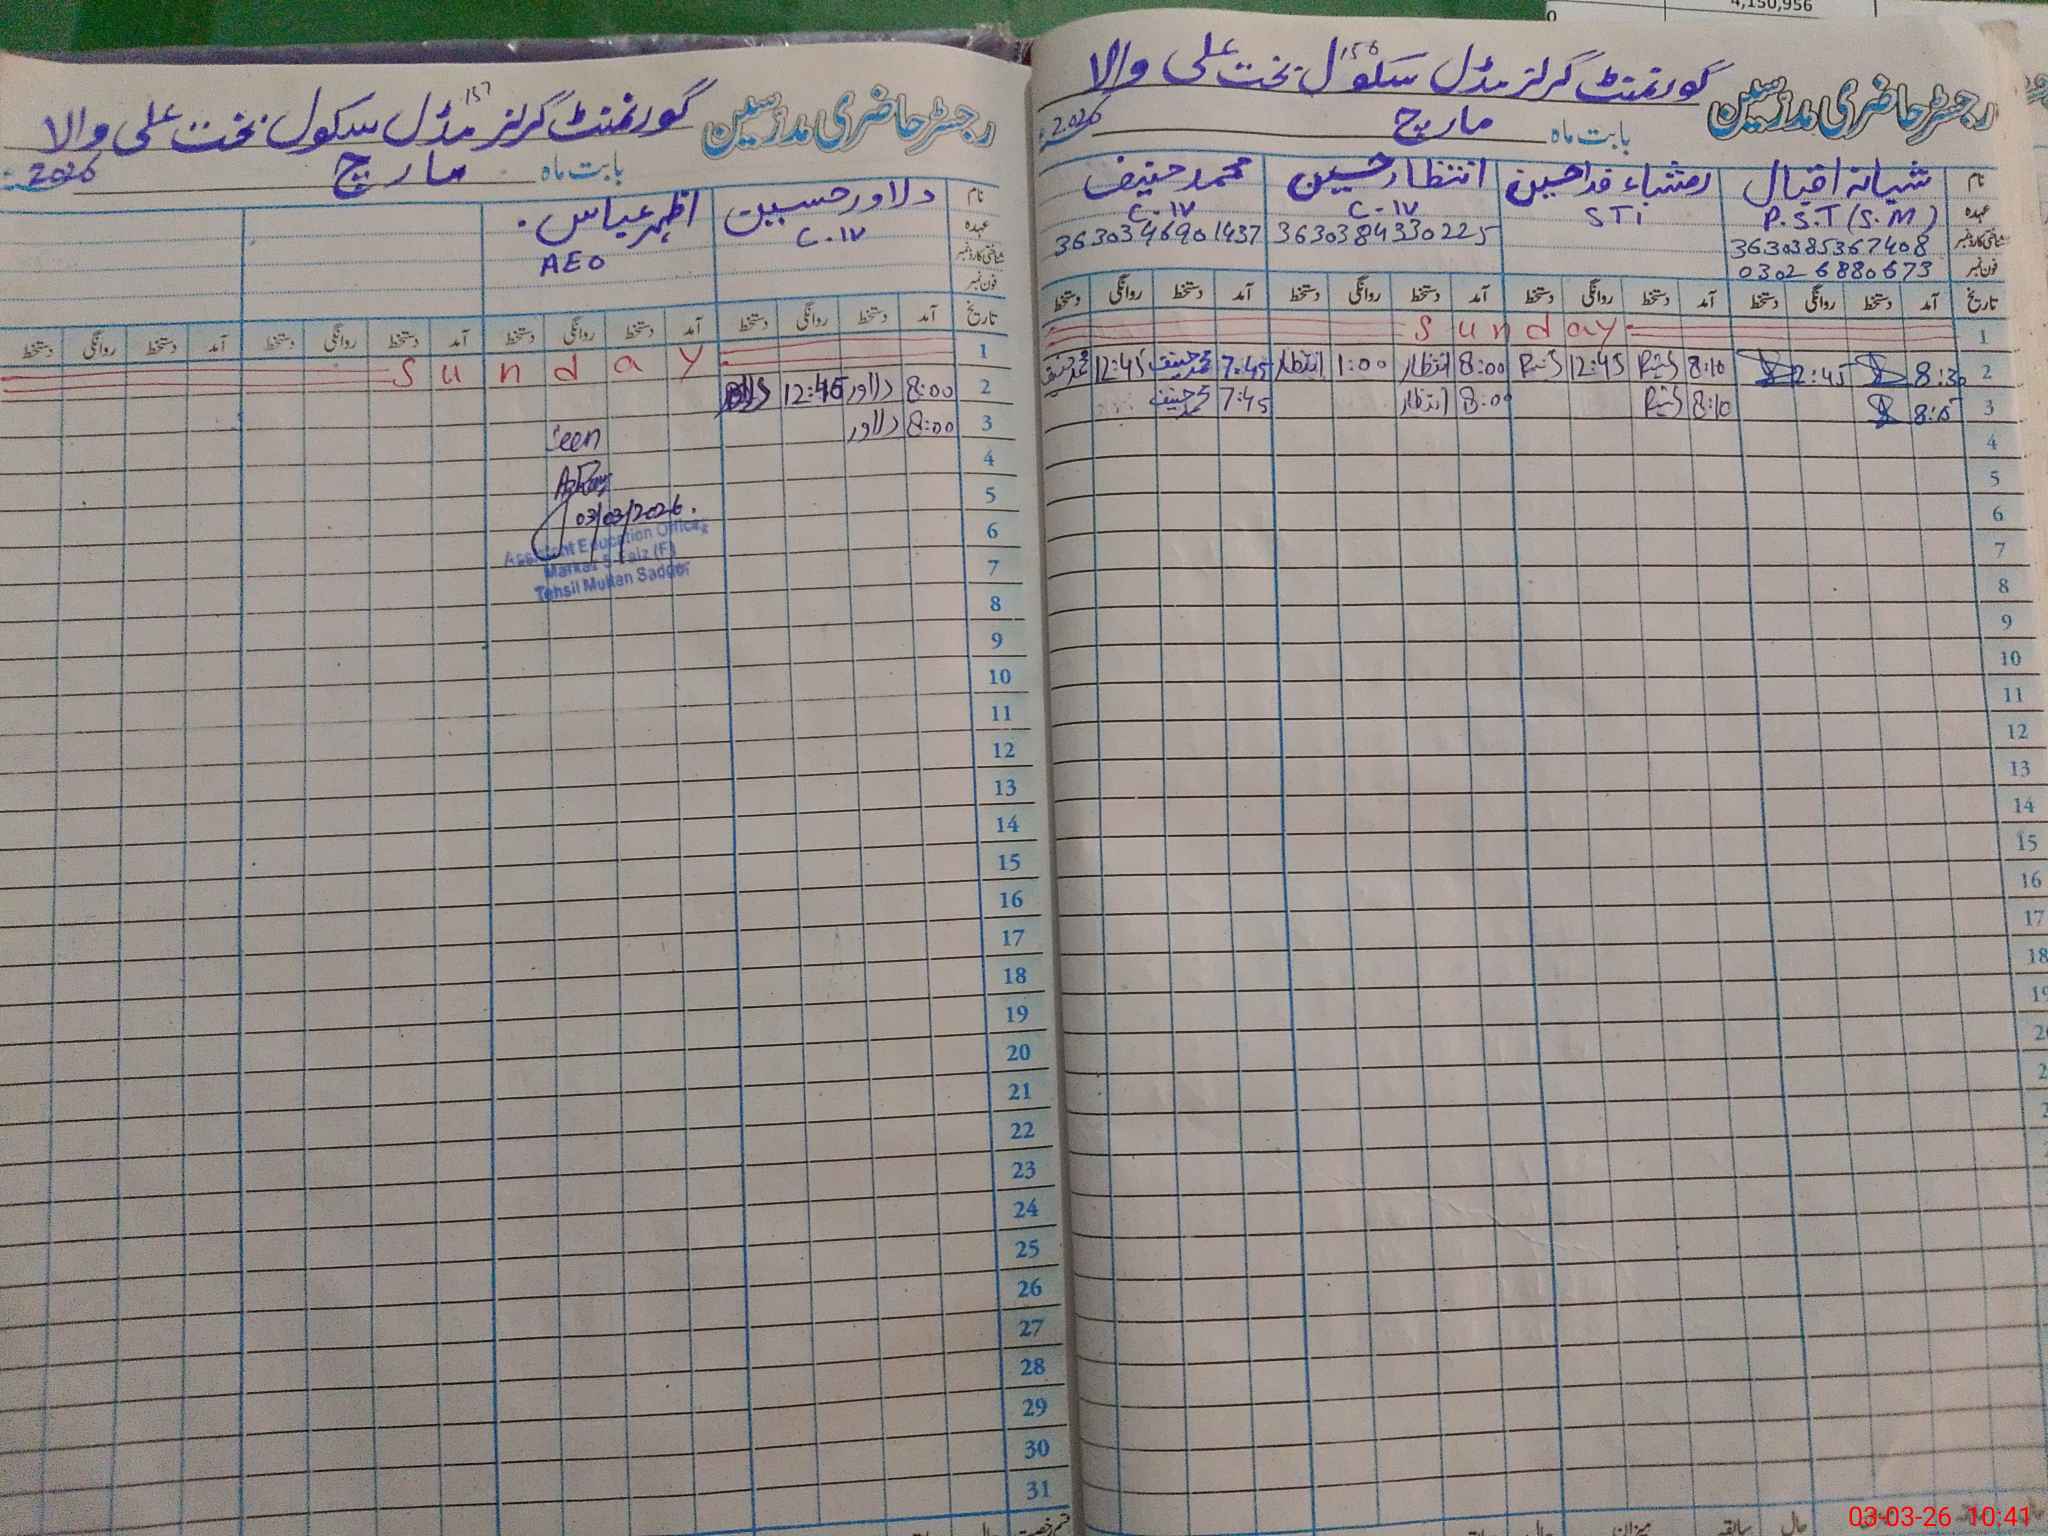 4,150,956
0
رجسٹر حاضری مدرسین گورنمنٹ گرلز مڈل سکول بخت علی والا
156
بابت ماہ مارچ 2026
نام شبانہ اقبال رمشاء فدا حسین انتظار حسین محمد حنیف
عہدہ P.S.T (S.M) STI C-IV C-IV
شناختی کارڈ نمبر 3630385367408 3630384330225 3630346901437
فون نمبر 03026880673
تاریخ آمد دستخط روانگی دستخط آمد دستخط روانگی دستخط آمد دستخط روانگی دستخط آمد دستخط روانگی دستخط
1 Sunday
2 8:30 2:45 8:10 12:45 8:00 انتظار 1:00 انتظار 7:45 محمد حنیف 12:45 محمد حنیف
3 8:15 8:10 8:00 انتظار 7:45 محمد حنیف
4
5
6
7
8
9
10
11
12
13
14
15
16
17
18
19
رجسٹر حاضری مدرسین گورنمنٹ گرلز مڈل سکول بخت علی والا
157
بابت ماہ مارچ 2026
نام دلاور حسین اظہر عباس
عہدہ C-IV AEO
شناختی کارڈ نمبر
فون نمبر
تاریخ آمد دستخط روانگی دستخط آمد دستخط روانگی دستخط آمد دستخط روانگی دستخط آمد دستخط روانگی دستخط
1 Sunday
2 8:00 دلاور 12:45 دلاور
3 8:00 دلاور
Seen
4
5
03/03/2026.
6
Assistant Education Officer
Markaz 5-Faiz (F)
7
Tehsil Multan Saddar
8
9
10
11
12
13
14
15
16
17
18
19
20
21
22
23
24
25
26
27
28
29
30
31
میزان سابقہ حال
03-03-26 10:41